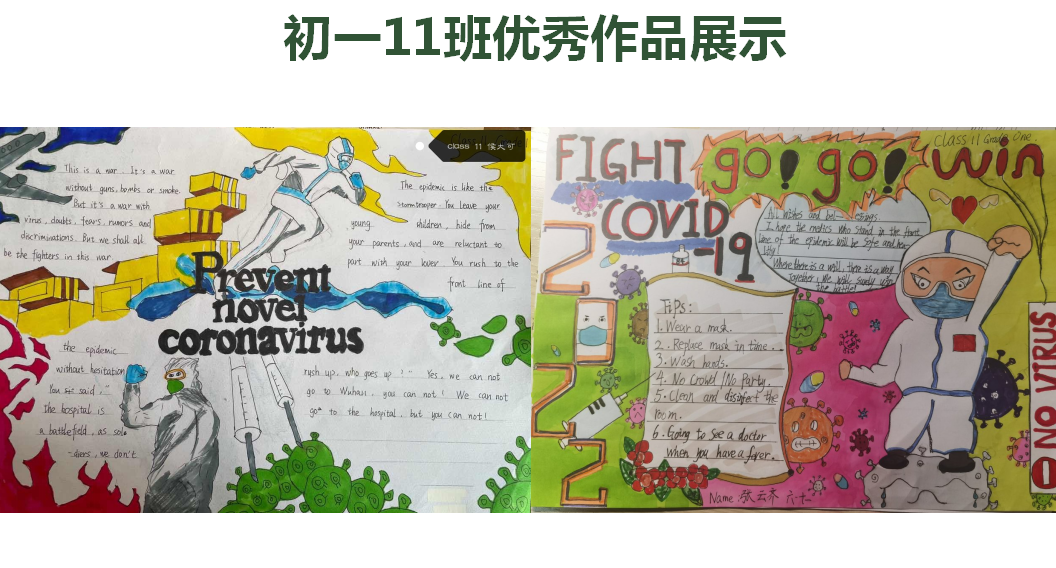 初一11班优秀作品展示
class 11 侯天可
This is a war. It's a war
without guns, bombs or smoke.
But it's a war with
virus, doubts, fears, rumors, and
discriminations. But we shall all
be the fighters in this war.
The epidemic is like the
stormtrooper. You leave your
young children, hide from
your parents, and are reluctant to
part with your lover. You rush to the
front line of
Prevent
novel
coronavirus
the epidemic
without hesitation
You said, "
The hospital is
a battlefield, as sol
-diers, we don't
rush up, who goes up!" Yes, we can not
go to Wuhan, you can not! We can not
go to the hospital, but you can not!
FIGHT go! go! win
Class 11 Grade One
COVID
-19
All wishes and
I hope the medics who stand in the front
line of the epidemic will be safe and heal-
thy!
Where there is a will, there is a way
together, we will surely win
the battle!
Tips:
1. Wear a mask.
2. Replace mask in time.
3. Wash hands.
4. No Crowd / No Party.
5. Clean and disinfect the
room.
6. Going to see a doctor
when you have a fever.
NO VIRUS
Name 张云齐 六十一